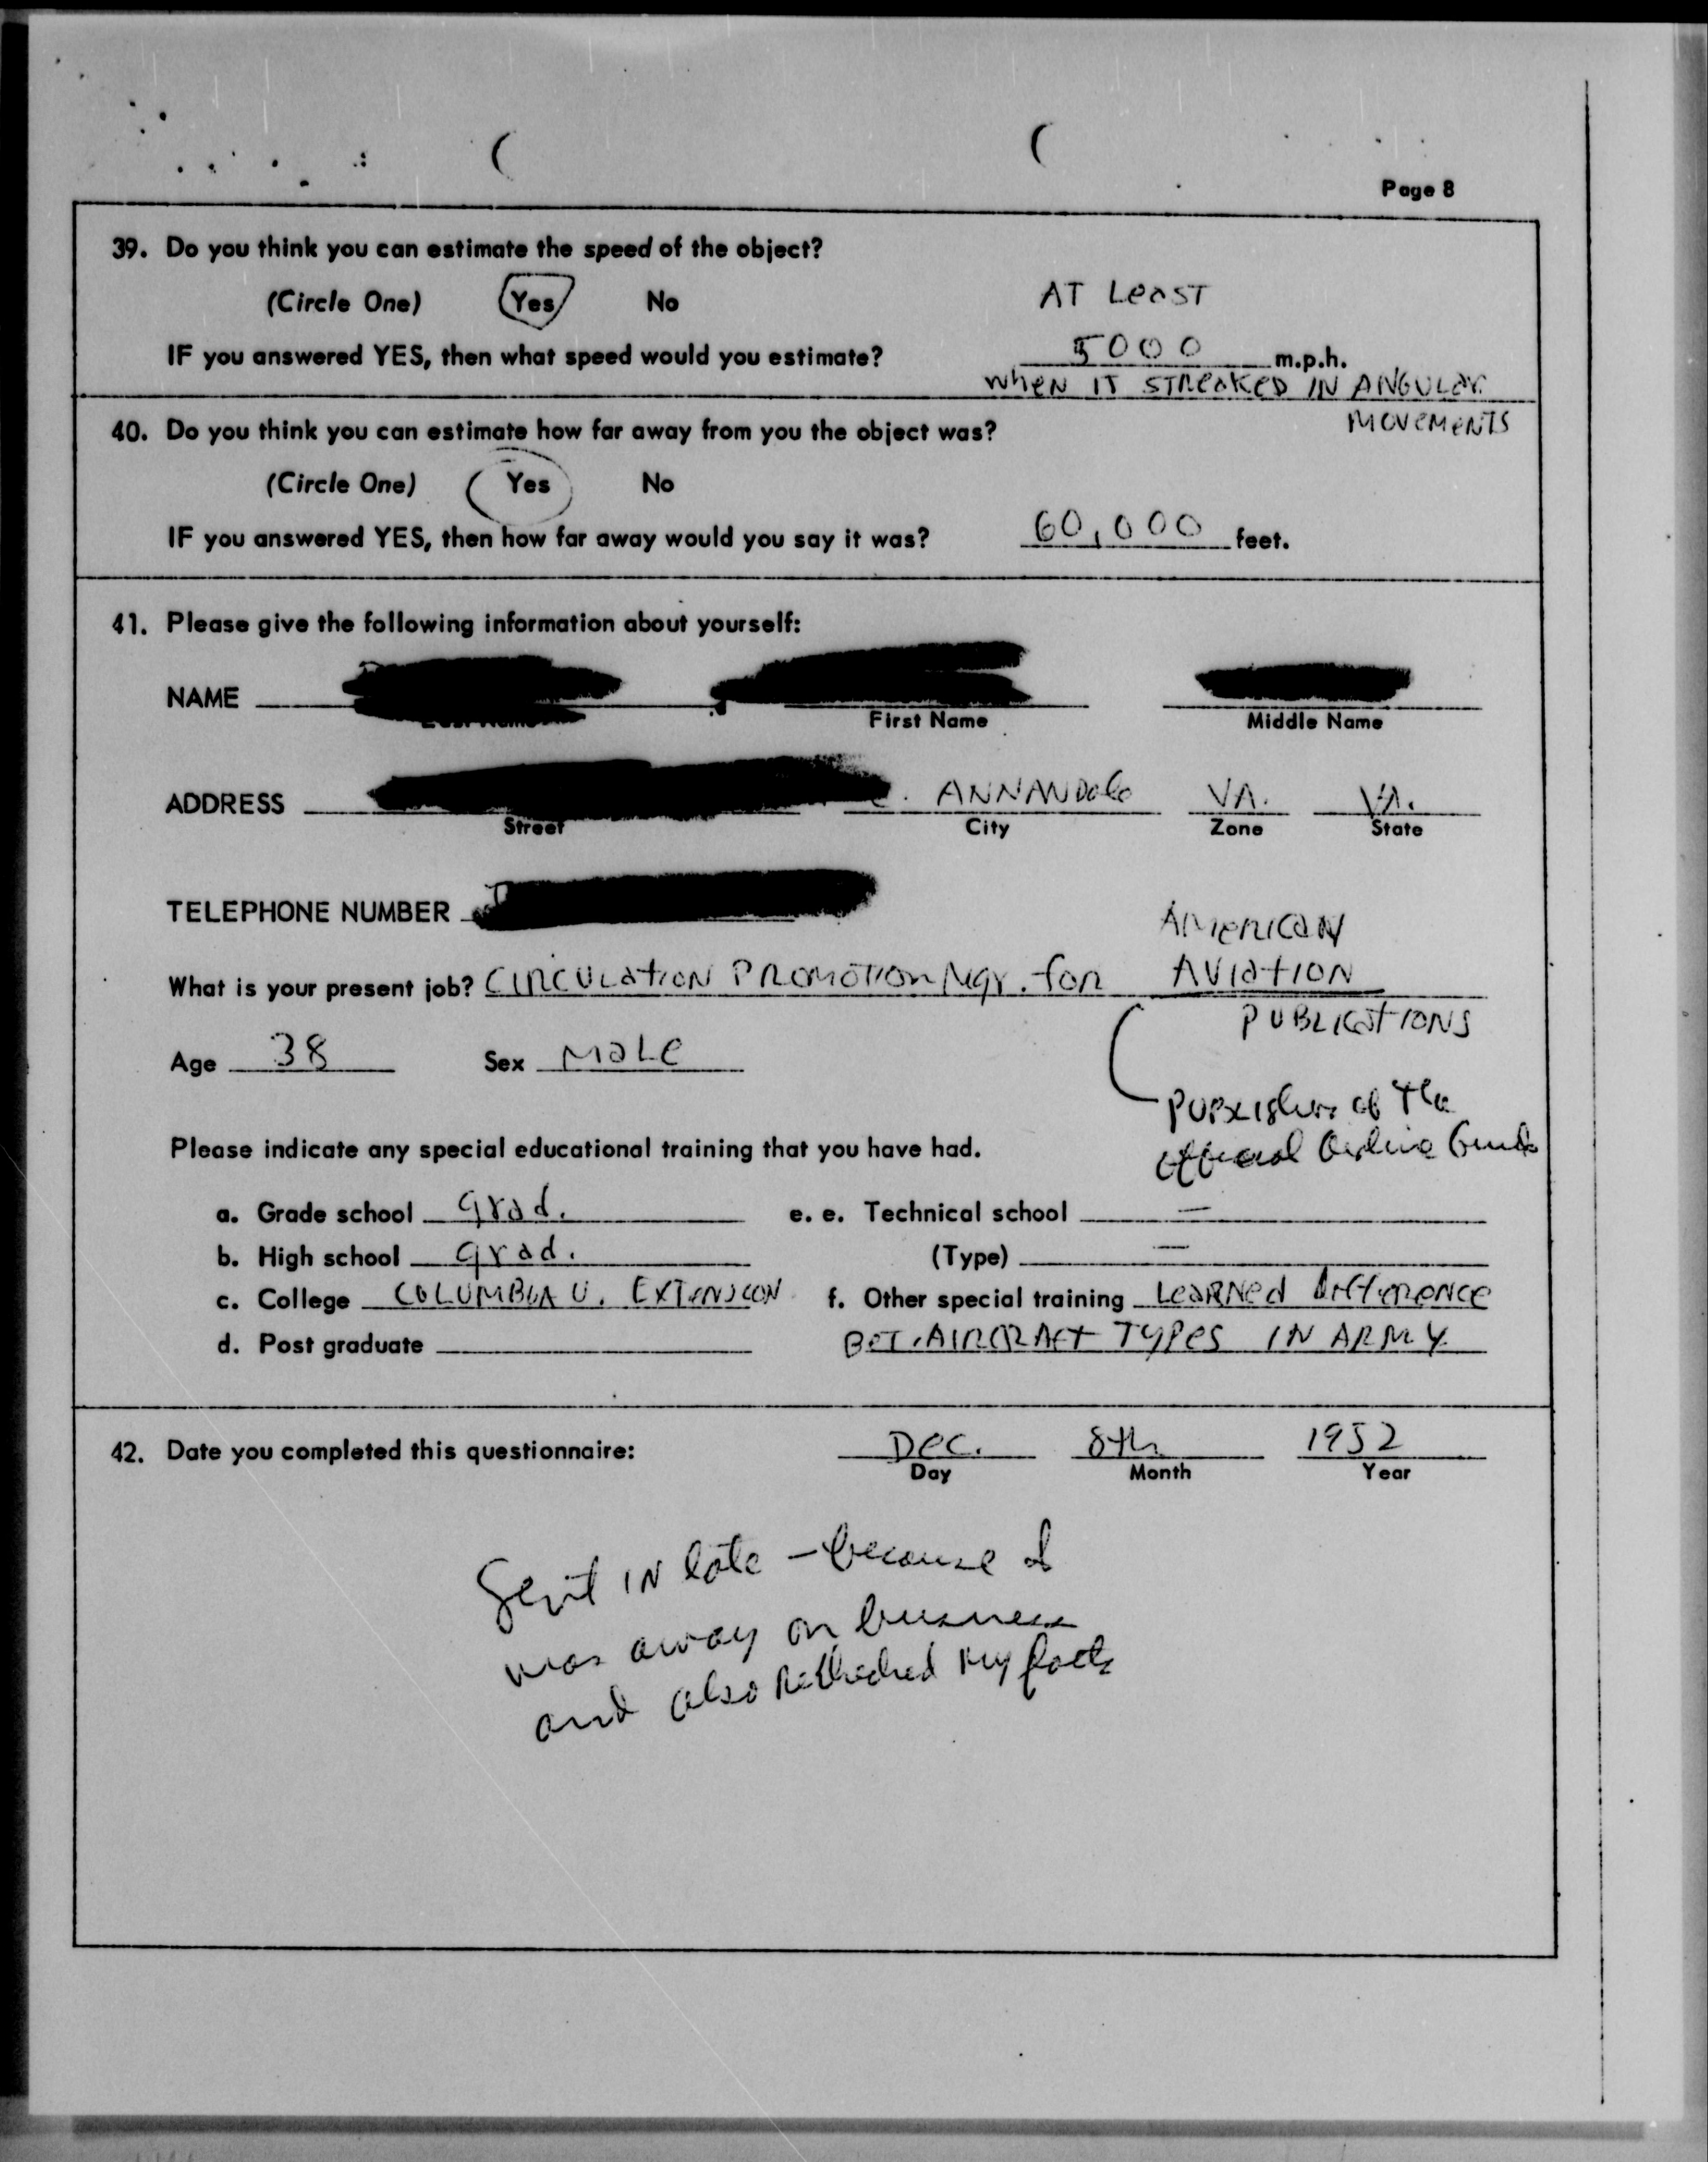 Page 8
39. Do you think you can estimate the speed of the object?
(Circle One) Yes No AT LEAST
IF you answered YES, then what speed would you estimate? 5000 m.p.h.
WHEN IT STREAKED IN ANGULAR
MOVEMENTS
40. Do you think you can estimate how far away from you the object was?
(Circle One) Yes No
IF you answered YES, then how far away would you say it was? 60,000 feet.
41. Please give the following information about yourself:
NAME
First Name Middle Name
ADDRESS ANNANDALE VA. VA.
Street City Zone State
TELEPHONE NUMBER
AMERICAN
What is your present job? CIRCULATION PROMOTION Mgr. for AVIATION
PUBLICATIONS
Age 38 Sex MALE
Publishers of the
Official Airline Guide
Please indicate any special educational training that you have had.
a. Grade school grad. e. e. Technical school —
b. High school grad. (Type) —
c. College COLUMBIA U. EXTENSION f. Other special training LEARNED DIFFERENCE
d. Post graduate BET. AIRCRAFT TYPES IN ARMY
42. Date you completed this questionnaire: Dec. 8th 1952
Day Month Year
Sent IN late — because I
was away on business
and also rechecked my facts